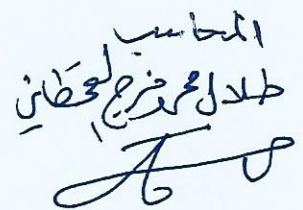 المحاسب
طلال محمد فرج القحطاني